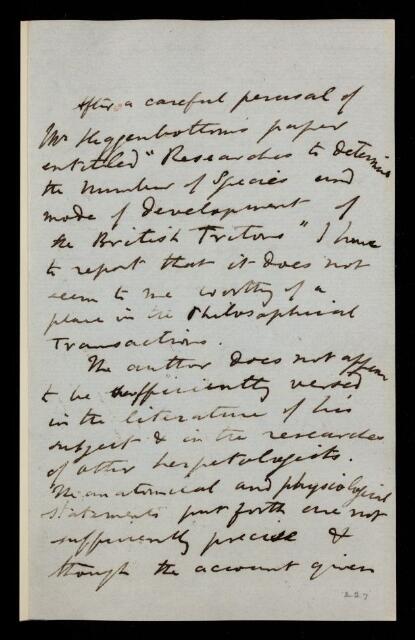 After a careful perusal of
Mr Higgenbottom's paper
entitled "Researches to determine
the Number of Species and
mode of development of
the British Tritons" I have
to report that it does not
seem to me worthy of a
place in the Philosophical
Transactions.
The author does not appear
to be sufficiently versed
in the literature of his
subject & in the researches
of other herpetologists.
The anatomical and physiological
statements put forth are not
sufficiently precise &
though the account given
227